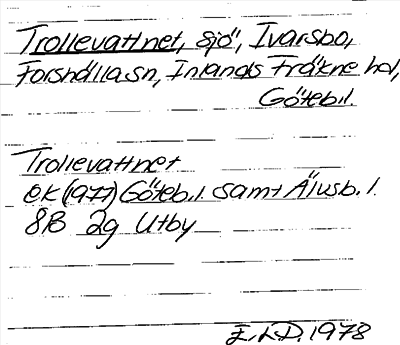 Trollevattnet, sjö, Ivarsbo,
Forshälla sn, Inlands Fräkne hd,
Göteb.l.
Trollevattnet
EK (1977) Göteb.l. samt Älvsb. l.
8B 2g Utby
E.L.D. 1978